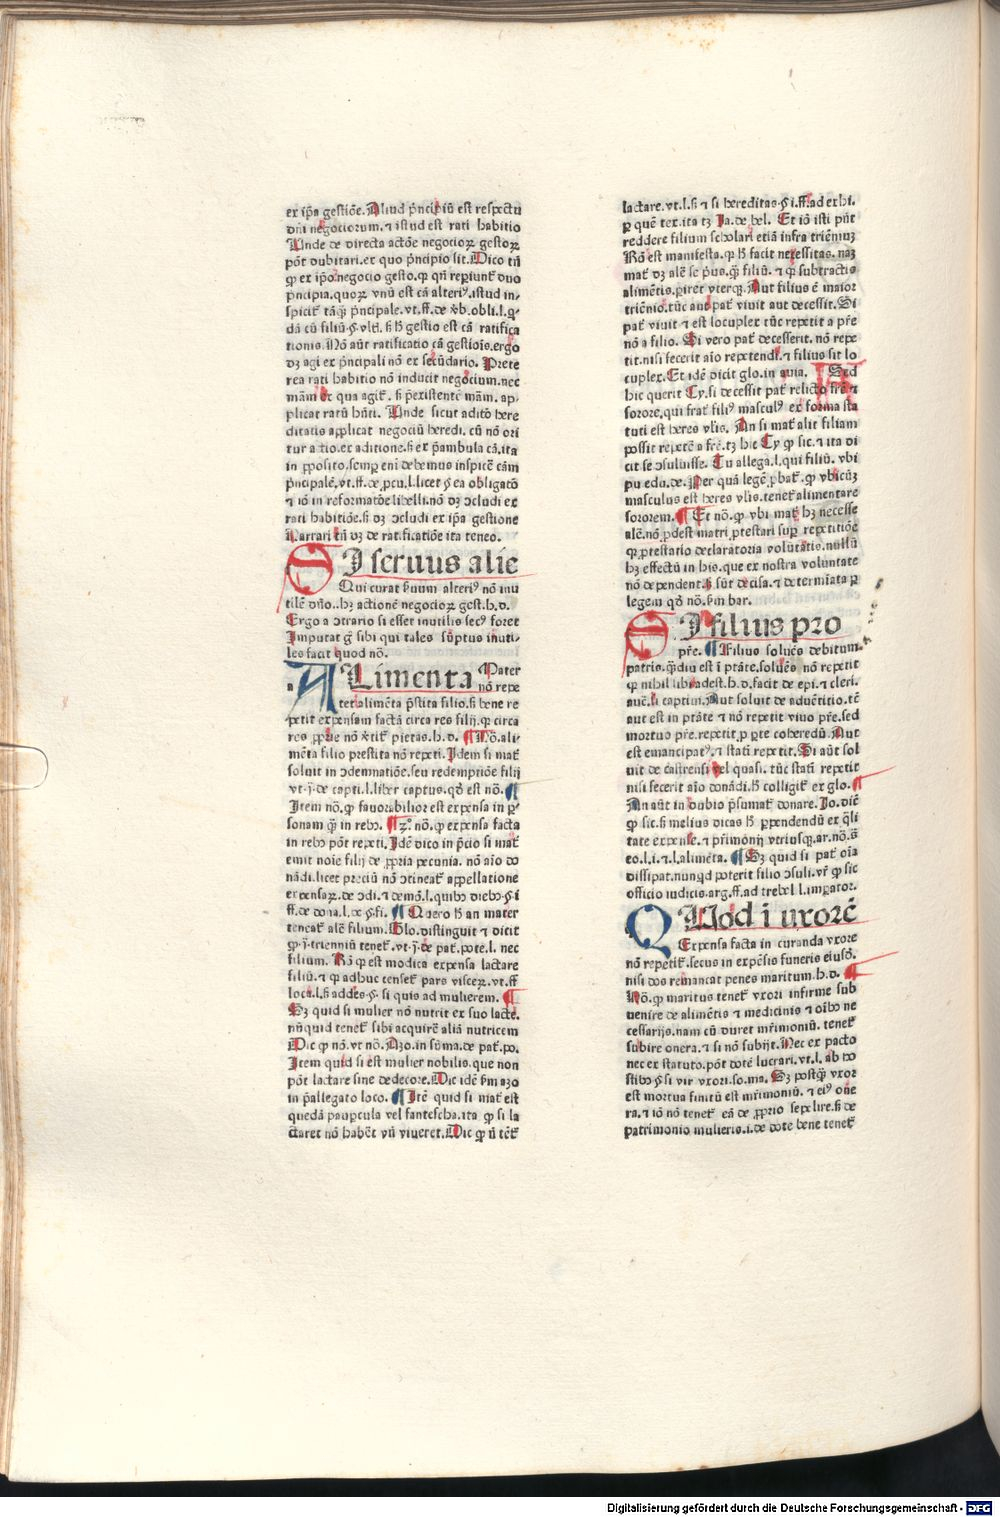 ex ip̄a gestiōe. Aliud p̄ncipiū est respectu
dn̄i negociorum. ⁊ istud est rati habitio
Unde de directa actōe negocioꝝ gestoꝝ
pōt dubitari. ex quo p̄ncipio sit. Dico tn̄
ꝙ ex ip̄o negocio gesto. ꝙ qn̄ reꝑiunt᷑ duo
p̄ncipia. quoꝝ vnū est cā alteriꝰ. istud in-
spicit᷑ tāꝙ̄ p̄ncipale. vt. ff. de v̄b. obli. l. q̄-
dā cū filiū. §. vlti. s̄ h̄ gestio est cā ratifica
tionis. Nō aūt ratificatio cā gestiois. ergo
dꝫ agi ex p̄ncipali nō ex secūdario. Prete
rea rati habitio nō inducit negocium. nec
mām ex qua agit᷑. s̄ p̄existentē mām. ap-
plicat ratū hn̄ti. Unde sicut aditō here
ditatis applicat negociū heredi. cū nō ori
tur a tio. ex aditione. s̄ ex p̄ambula cā. ita
in ꝓposito. semꝑ eni debemus inspicē cām
p̄ncipalē. vt. ff. de ꝓcu. l. licet §. ea obligatō
⁊ iō in reformatōe libelli. nō dꝫ ɔcludi ex
rati habitiōe. s̄ dꝫ ɔcludi ex ip̄a gestione
Narrari tn̄ dꝫ de ratificatiōe ita teneo.
SI seruus alie
Qui curat s̄uum alteriꝰ nō inu
tilē dn̄o. hꝫ actionē negocioꝝ gest. h. d.
Ergo a ɔtrario si esset inutilis secꝰ foret
Imputat gͦ sibi qui tales sūptus inuti-
les facit quod nō.
ALimenta Pater
a nō repe
tet alimēta p̄stita filio. s̄ bene re
petit expensam factā circa res filij. ꝙ circa
res ꝓprie nō v̄tit᷑ pietas. h. d. ¶ Nō. ali-
mēta filio prestita nō repeti. Idem si mat᷑
soluit in ɔdemnatiōe. seu redemptiōe filij
vt. j. de capti. l. liber captus. qd̄ est nō. ¶
Item nō. ꝙ fauorabilior est expensa in ꝑ-
sonam ꝙ̄ in rebꝰ. ¶ 2ͦ. nō. ꝙ expensa facta
in rebꝰ pōt repeti. Idē dico in p̄cio si mat᷑
emit noie filij de ꝓpria pecunia. nō aīo do
nādi. licet preciū nō ɔtineat᷑ appellatione
expensaꝝ. de ɔdi. ⁊ demō. l. quibꝰ diebꝰ §. i
ff. de dona. l. ex §. fi. ¶ Quero h̄ an mater
teneat᷑ alē filium. Glo. distinguit ⁊ dicit
ꝙ. j. trienniū tenet᷑. vt. j. de pat᷑. pote. l. nec
filium. Rō ꝙ est modica expensa lactare
filiū. ⁊ ꝙ adhuc censet᷑ pars visceꝝ. vt. ff
loca. l. s̄ addes. §. si quis ad mulierem. ¶
Sꝫ quid si mulier nō nutrit ex suo lacte.
nūquid tenet᷑ sibi acquirē aliā nutricem
Dic ꝙ nō. vt nō. Azo. in sūma. de pat᷑. po.
Item quid si est mulier nobilis. que non
pōt lactare sine dedecore. Dic idē s̄m azo
in p̄allegato loco. ¶ Itē quid si mat᷑ est
quedā paupcula vel fantescha. ita ꝙ si la
ctaret nō habēt vn̄ viueret. Dic ꝙ n̄ tēt᷑
lactare. vt. l. s̄ ⁊ si hereditas. §. i. ff. ad exhi.
ꝑ quē tex. ita tꝫ Ja. de bel. Et iō isti pn̄t
reddere filium scholari etiā infra trienniuꝫ
Rō est manifesta. ꝙ h̄ facit necessitas. naꝫ
mat᷑ dꝫ alē se p̄us. ꝙ̄ filiū. ⁊ ꝙ subtractis
alimētis. ꝑiret vterqꝫ. Aut filius ē maior
triēnio. tūc aut pat᷑ viuit aut decessit. Si
pat᷑ viuit ⁊ est locuplex tūc repetit a pr̄e
nō a filio. Si vero pat᷑ decesserit. nō repe
tit. nisi fecerit aīo repetendi. ⁊ filius sit lo
cuplex. Et idē dicit glo. in auia. Sed
hic querit Cy. si decessit pat᷑ relicto fr̄e ⁊
sorore. qui frat᷑ filiꝰ masculꝰ ex forma sta
tuti est heres vlis. An si mat᷑ alit filiam
possit repetē a fr̄e. tꝫ hic Cy ꝙ sic. ⁊ ita di
cit se ɔsuluisse. Tu allega. l. qui filiū. vbi
pu edu. de. Per quā legē ꝓbat᷑. ꝙ vbicūqꝫ
masculus est heres vlis. tenet᷑ alimentare
sororem. ¶ Et nō. ꝙ vbi mat᷑ hꝫ necesse
alē. nō ꝓdest matri ꝓtestari suꝑ repetitiōe
ꝙ ꝓtestatio declaratoria volūtatis. nullū
hꝫ effectū in his. que ex nostra voluntate
nō dependent. s̄ sūt decisa. ⁊ determīata ꝑ
legem qd̄ nō. s̄m bar.
SI filius pro
pr̄e. ¶ Filius soluēs debitum
patris. ꝙ̄diu est ī ptāte. soluēs nō repetit
ꝙ nihil sibi adest. h. d. facit de epi. ⁊ cleri.
autē. si captiui. Aut soluit de aduētitio. tē
aut est in ptāte ⁊ nō repetit viuo pr̄e. sed
mortuo pr̄e. repetit. ꝓ ꝑte coheredū. Aut
est emancipatꝰ. ⁊ statī repetit. Si aūt sol
uit de castrensi vel quasi. tūc statī repetit
nisi fecerit aīo donādi. h̄ colligit᷑ ex glo. ¶
An aūt in dubio p̄sumat᷑ donare. Jo. dīc
ꝙ sic. s̄ melius dicas h̄ ꝑpendendū ex q̄li
tate expēse. ⁊ pr̄imonij vtriusqꝫ. ar. nō. s̄
eo. l. i. ⁊ l. alimēta. ¶ Sꝫ quid si pat᷑ oīa
dissipat. nunqd poterit filio ɔsuli. vr̄ ꝙ sic
officio iudicis. arg. ff. ad trebel l. imꝑator.
QUod ī vxorē
Expensa facta in curanda vxore
nō repetit᷑. secus in expēsis funeris eiusd̄.
nisi dos remaneat penes maritum. h. d. ¶
Nō. ꝙ maritus tenet᷑ vxori infirme sub
uenire de alimētis ⁊ medicinis ⁊ oībꝰ ne
cessarijs. nam cū duret mr̄imoniū. tenet᷑
subire onera. ⁊ si nō subijt. Nec ex pacto
nec ex statuto. pōt dotē lucrari. vt. l. ab ho
stibꝰ §. si vir vxori. so. ma. Sꝫ postꝙ̄ vxor
est mortua finitū est mr̄imoniū. ⁊ eiꝰ one
ra. ⁊ iō nō tenet᷑ eā de ꝓprio sepelire. s̄ de
patrimonio mulieris. i. de dote bene tenet᷑
Digitalisierung gefördert durch die Deutsche Forschungsgemeinschaft - DFG